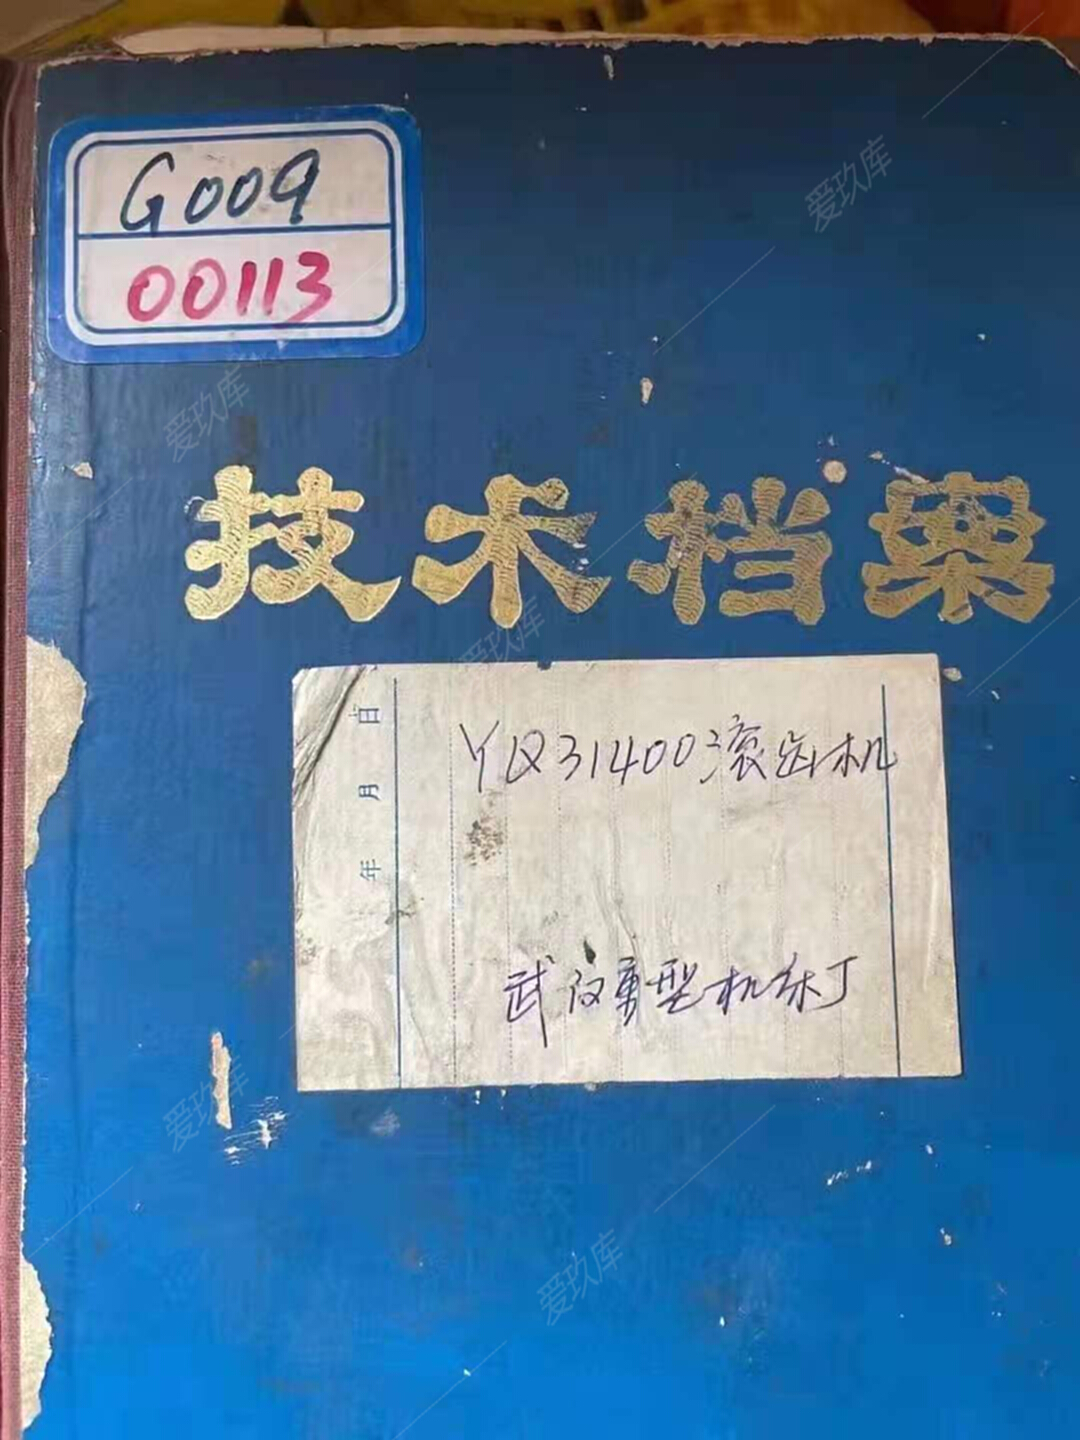 G009
00113
技术档案
年月日
YQ31400滚齿机
武汉重型机床厂
爱玖库
爱玖库
爱玖库
爱玖库
爱玖库